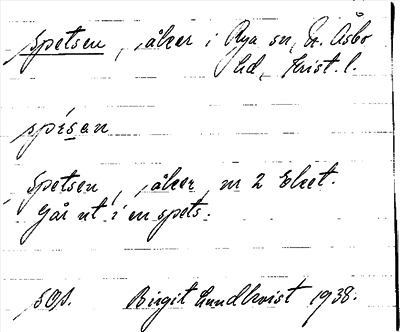 spetsen, åker i Rya sn, Ö. Åsbo
hd, Krist. l.
spésan
Spetsen, åker, nr 2 Elset.
Går ut i en spets.
SOS. Birgit Lundkvist 1938.